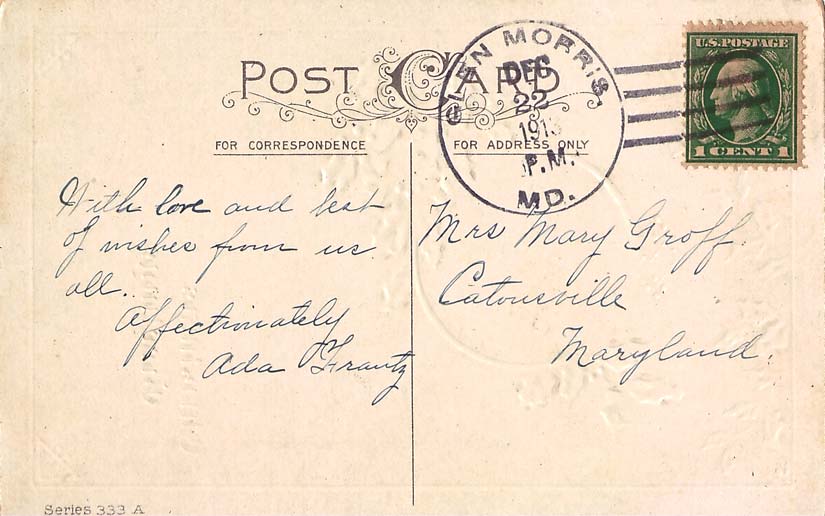 POST CARD
FOR CORRESPONDENCE
FOR ADDRESS ONLY
GLEN MORRIS,
DEC
22
P.M.
MD.
U.S. POSTAGE
1 CENT 1
With love and best
of wishes from us
all.
Affectionately
Ada Frantz
Mrs Mary Groff.
Catonsville
Maryland.
Series 333 A